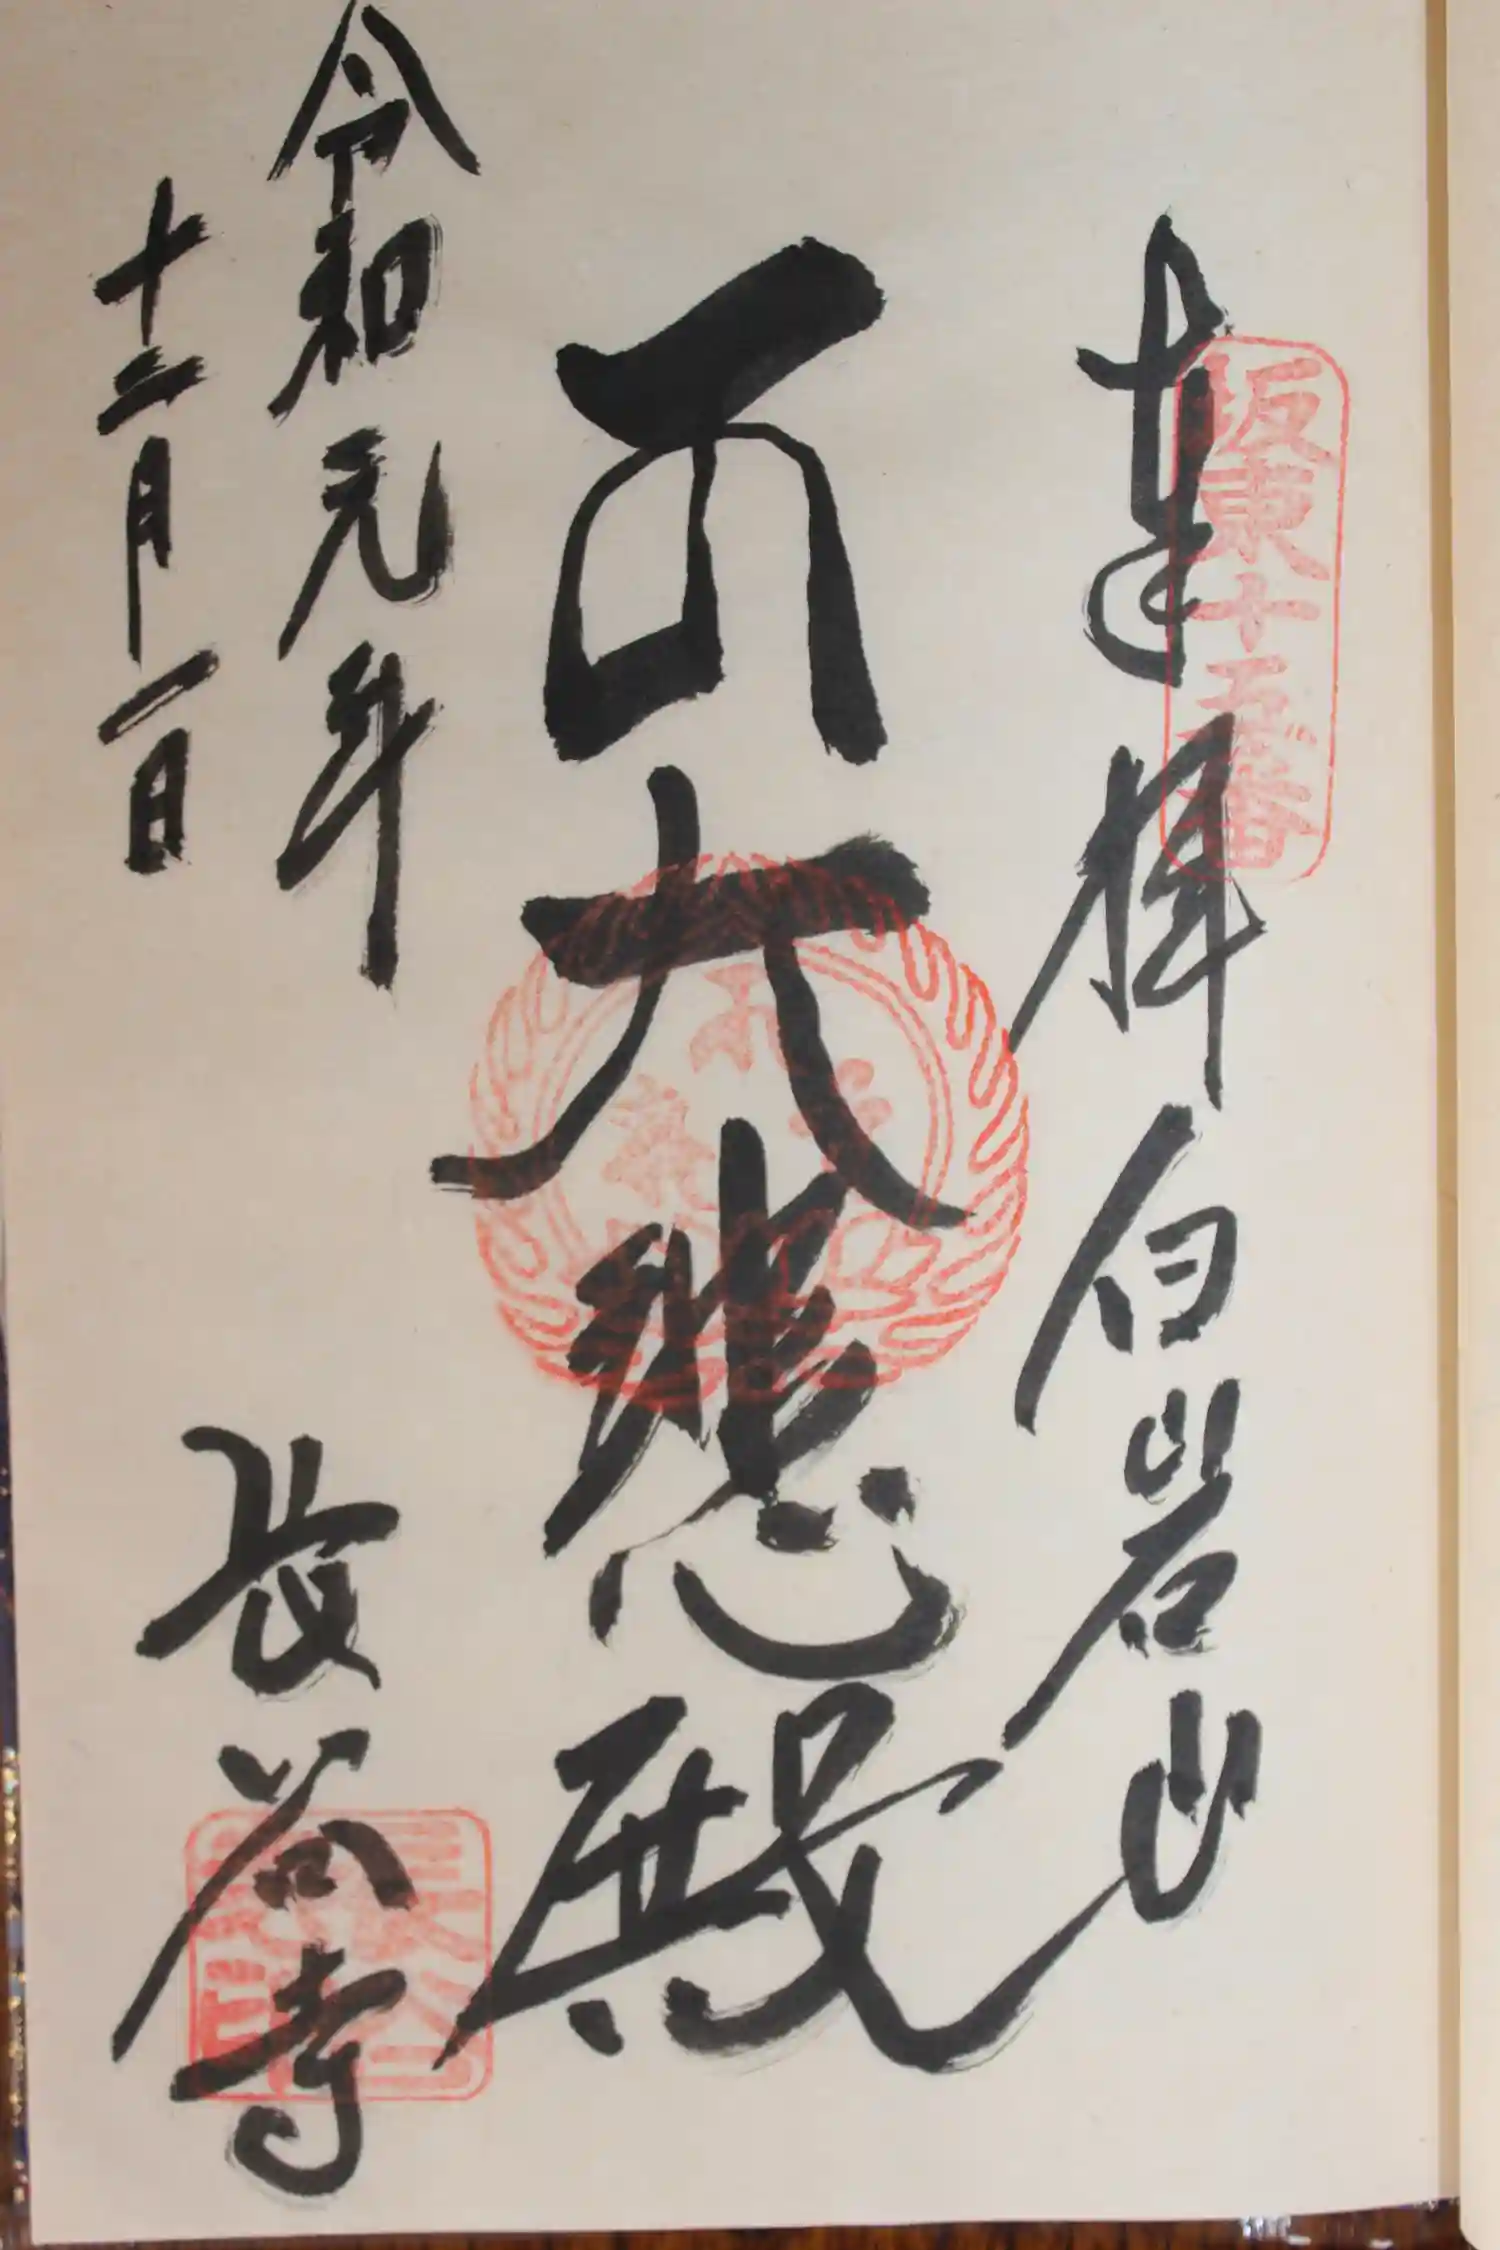 奉拝 白岩山
坂東十五番
大悲殿
令和元年
十二月一日
長谷寺